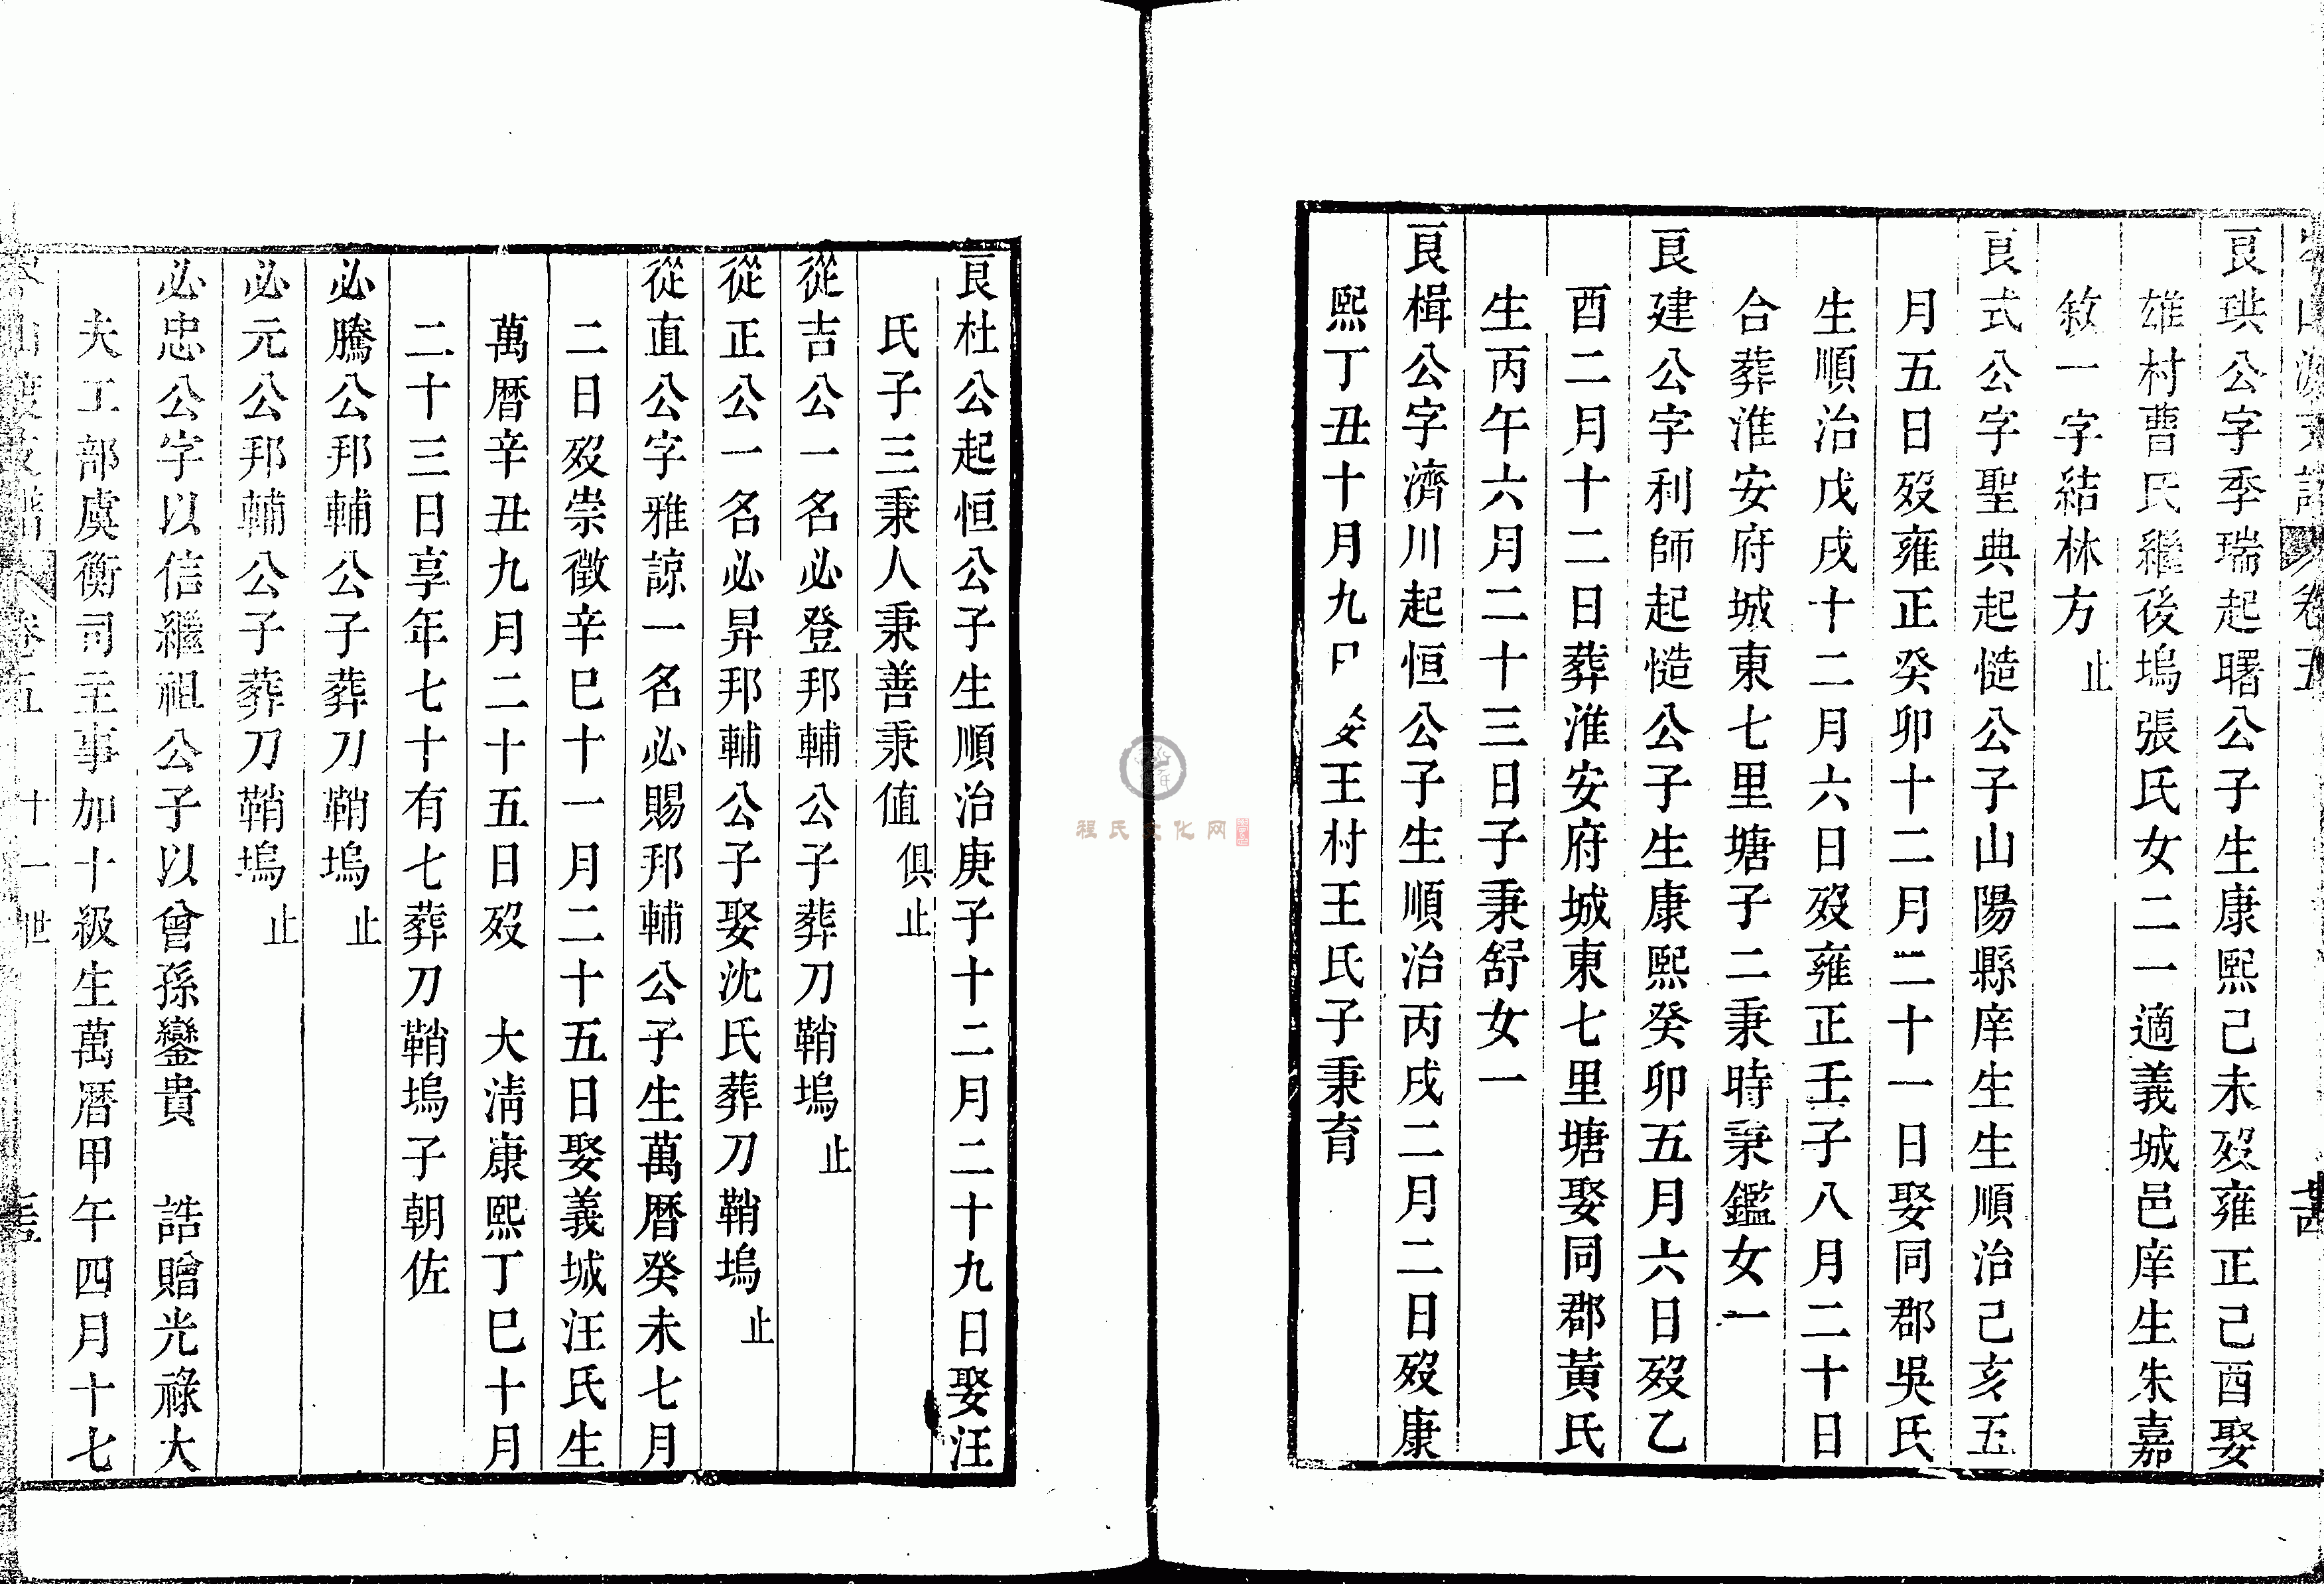 良珙公字季瑞起曙公子生康熙己未歿雍正己酉娶
雄村曹氏繼後塢張氏女二一適義城邑庠生朱嘉
敘一字結林方止
良式公字聖典起慥公子山陽縣庠生生順治己亥五
月五日歿雍正癸卯十二月二十一日娶同郡吳氏
生順治戊戌十二月六日歿雍正壬子八月二十日
合葬淮安府城東七里塘子二秉時秉鑑女一
良建公字利師起慥公子生康熙癸卯五月六日歿乙
酉二月十二日葬淮安府城東七里塘娶同郡黃氏
生丙午六月二十三日子秉舒女一
良楫公字濟川起恒公子生順治丙戌二月二日歿康
熙丁丑十月九日 王村王氏子秉育
良杜公起恒公子生順治庚子十二月二十九日娶汪
氏子三秉人秉善秉值俱止
從吉公一名必登邦輔公子葬刀鞘塢止
從正公一名必昇邦輔公子娶沈氏葬刀鞘塢止
從直公字雅諒一名必賜邦輔公子生萬曆癸未七月
二日歿崇徵辛巳十一月二十五日娶義城汪氏生
萬曆辛丑九月二十五日歿 大清康熙丁巳十月
二十三日享年七十有七葬刀鞘塢子朝佐
必騰公邦輔公子葬刀鞘塢止
必元公邦輔公子葬刀鞘塢止
必忠公字以信繼祖公子以曾孫鑾貴 誥贈光祿大
夫工部虞衡司主事加十級生萬曆甲午四月十七
卷五 十一世
程氏文化网